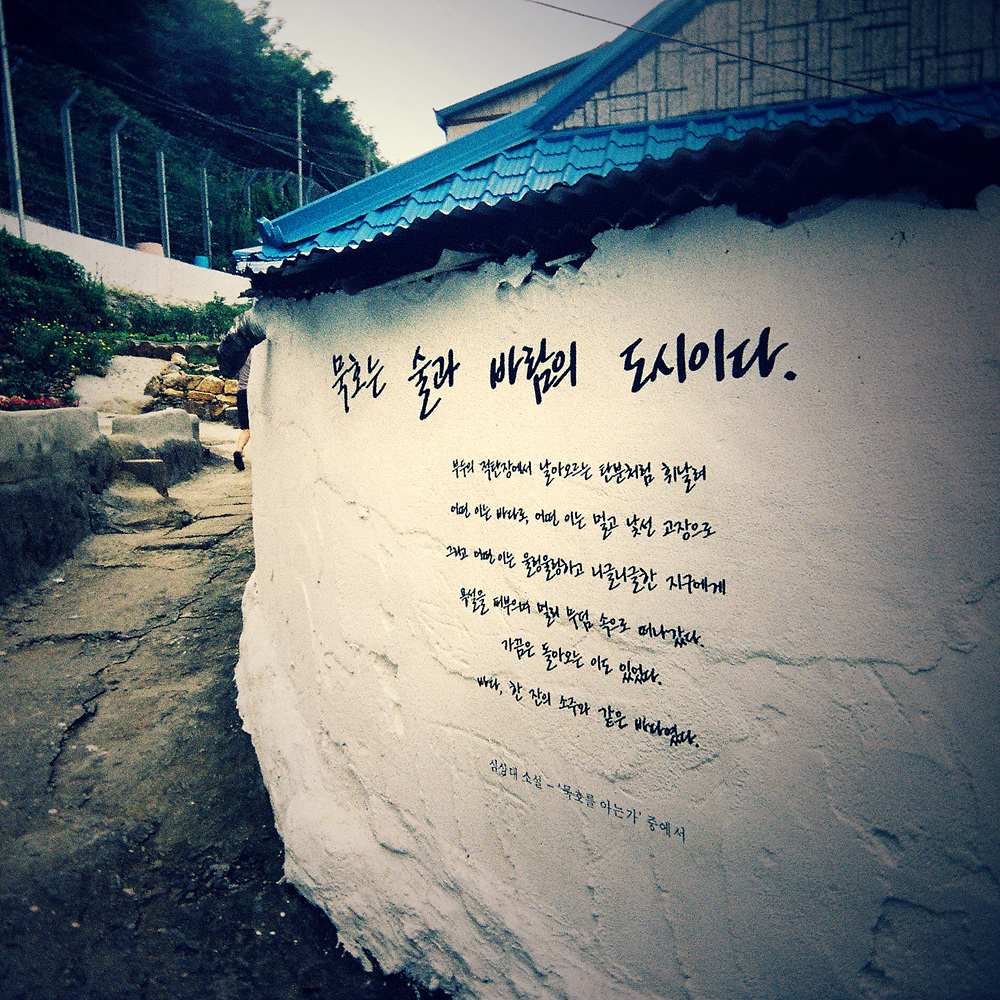 묵호는 술과 바람의 도시이다.
부두의 적탄장에서 날아오르는 탄분처럼 휘날려
어떤 이는 바다로, 어떤 이는 멀고 낯선 고장으로
그리고 어떤 이는 울렁울렁하고 니글니글한 지구에게
욕설을 퍼부으며 멀리 무덤 속으로 떠나갔다.
가끔은 돌아오는 이도 있었다.
바다, 한 잔의 소주와 같은 바다였다.
심상대 소설 - '묵호를 아는가' 중에서